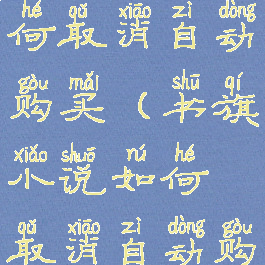 hé qǔ xiāo zì dòng
何取消自动
gòu mǎi shū qí
购买（书旗
xiǎo shuō rú hé
小说如何
qǔ xiāo zì dòng gòu
取消自动购